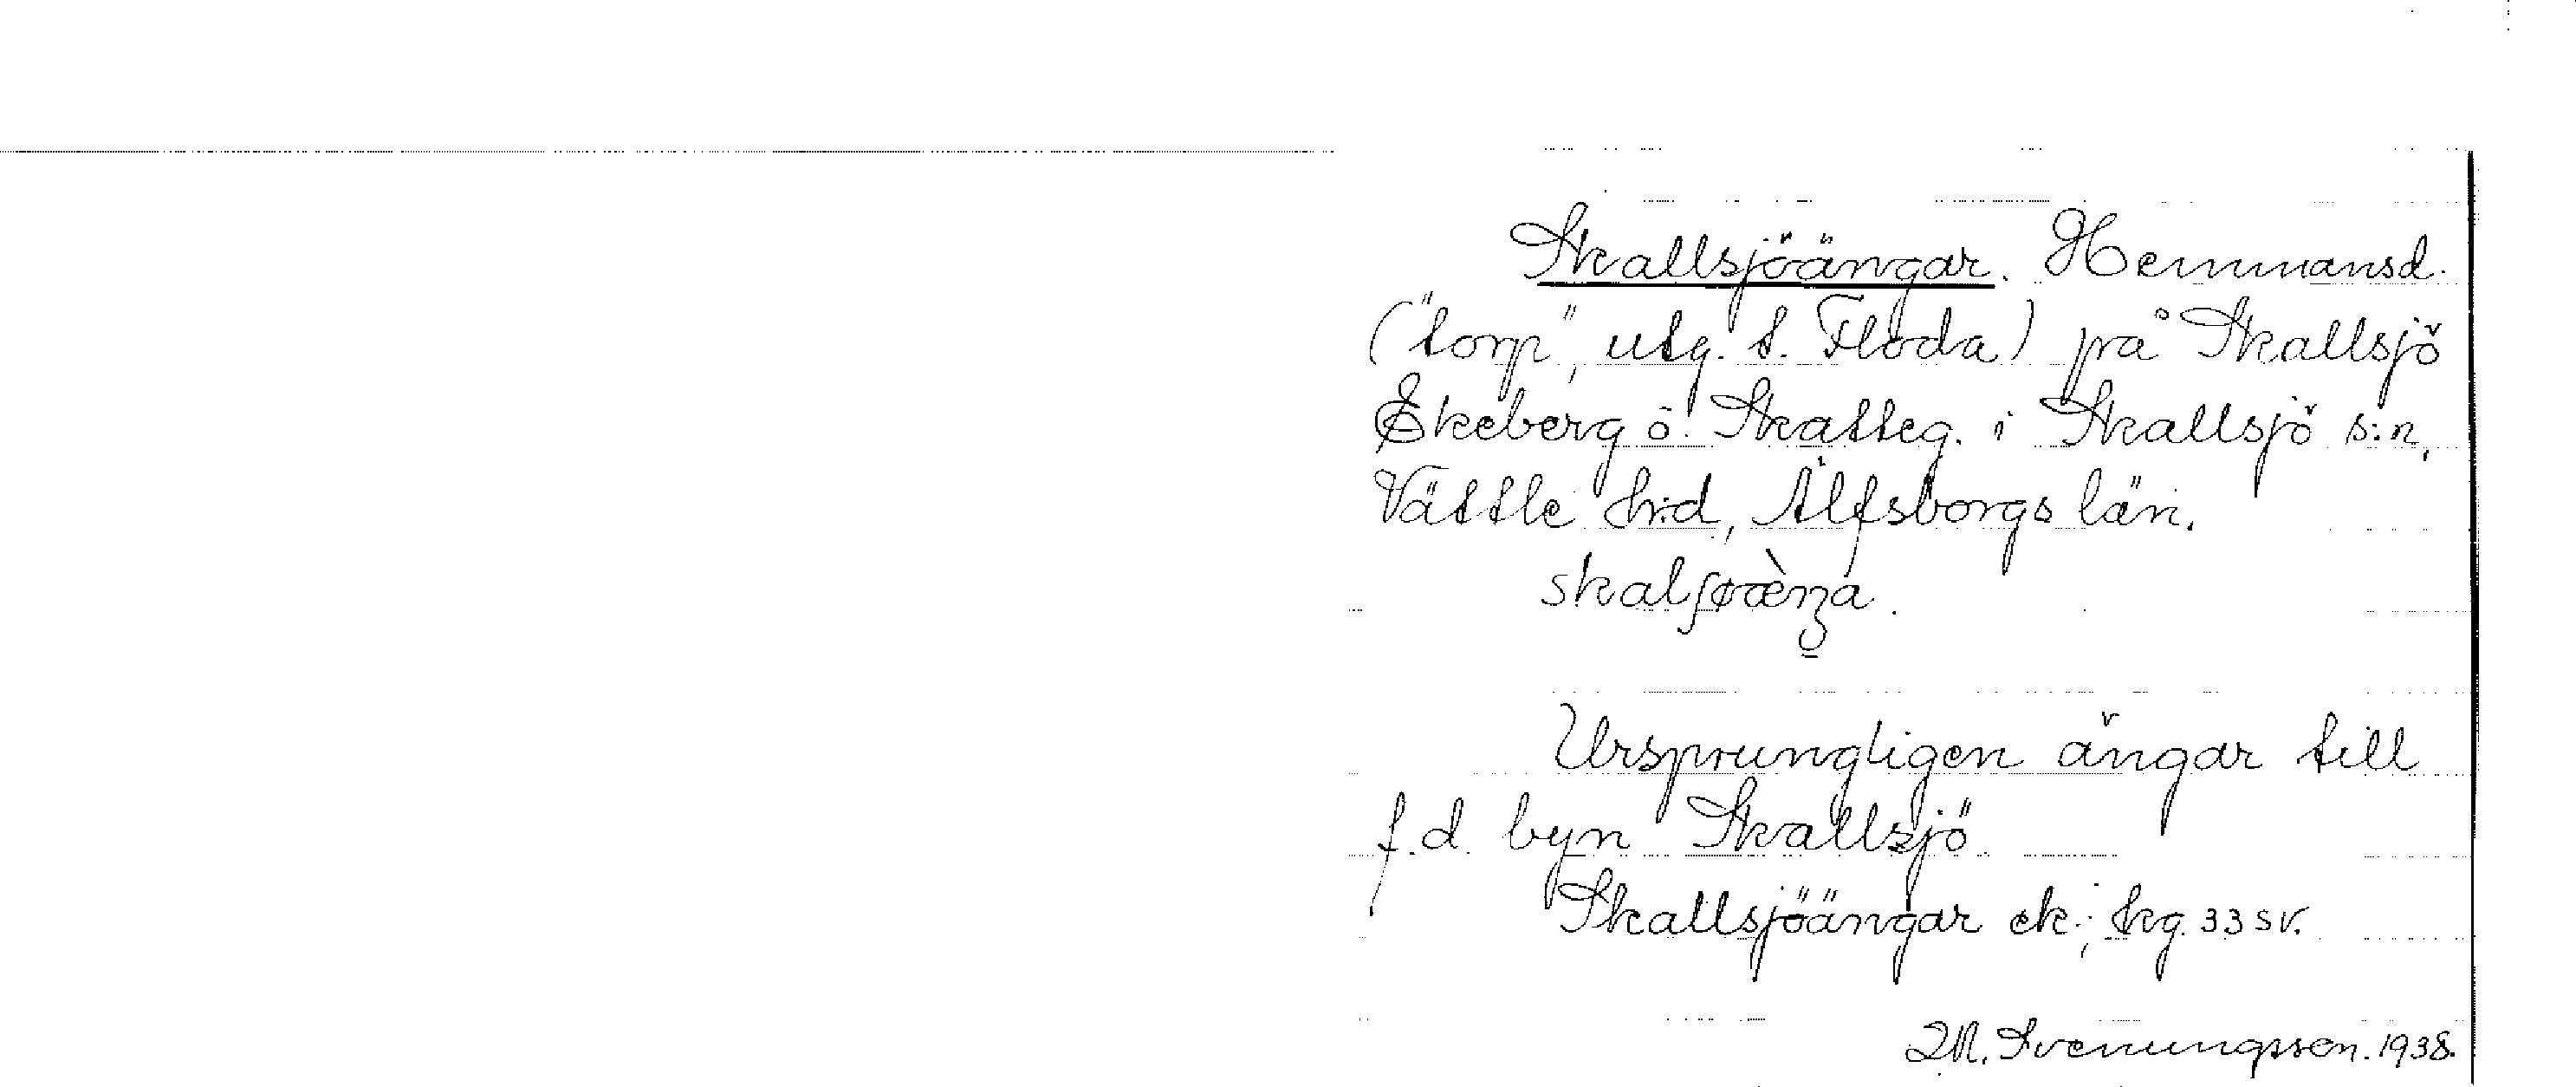 Skallsjöängar. Hemmansd.
("torp", utg. t. Floda) på Skallsjö
Ekeberg o. Skatteg. i Skallsjö s:n,
Vättle h:d, Älfsborgs län.
Ursprungligen ängar till
f.d. byn Skallsjö.
Skallsjöängar ek.; kg. 33 sv.
M. Svenungsson. 1938.